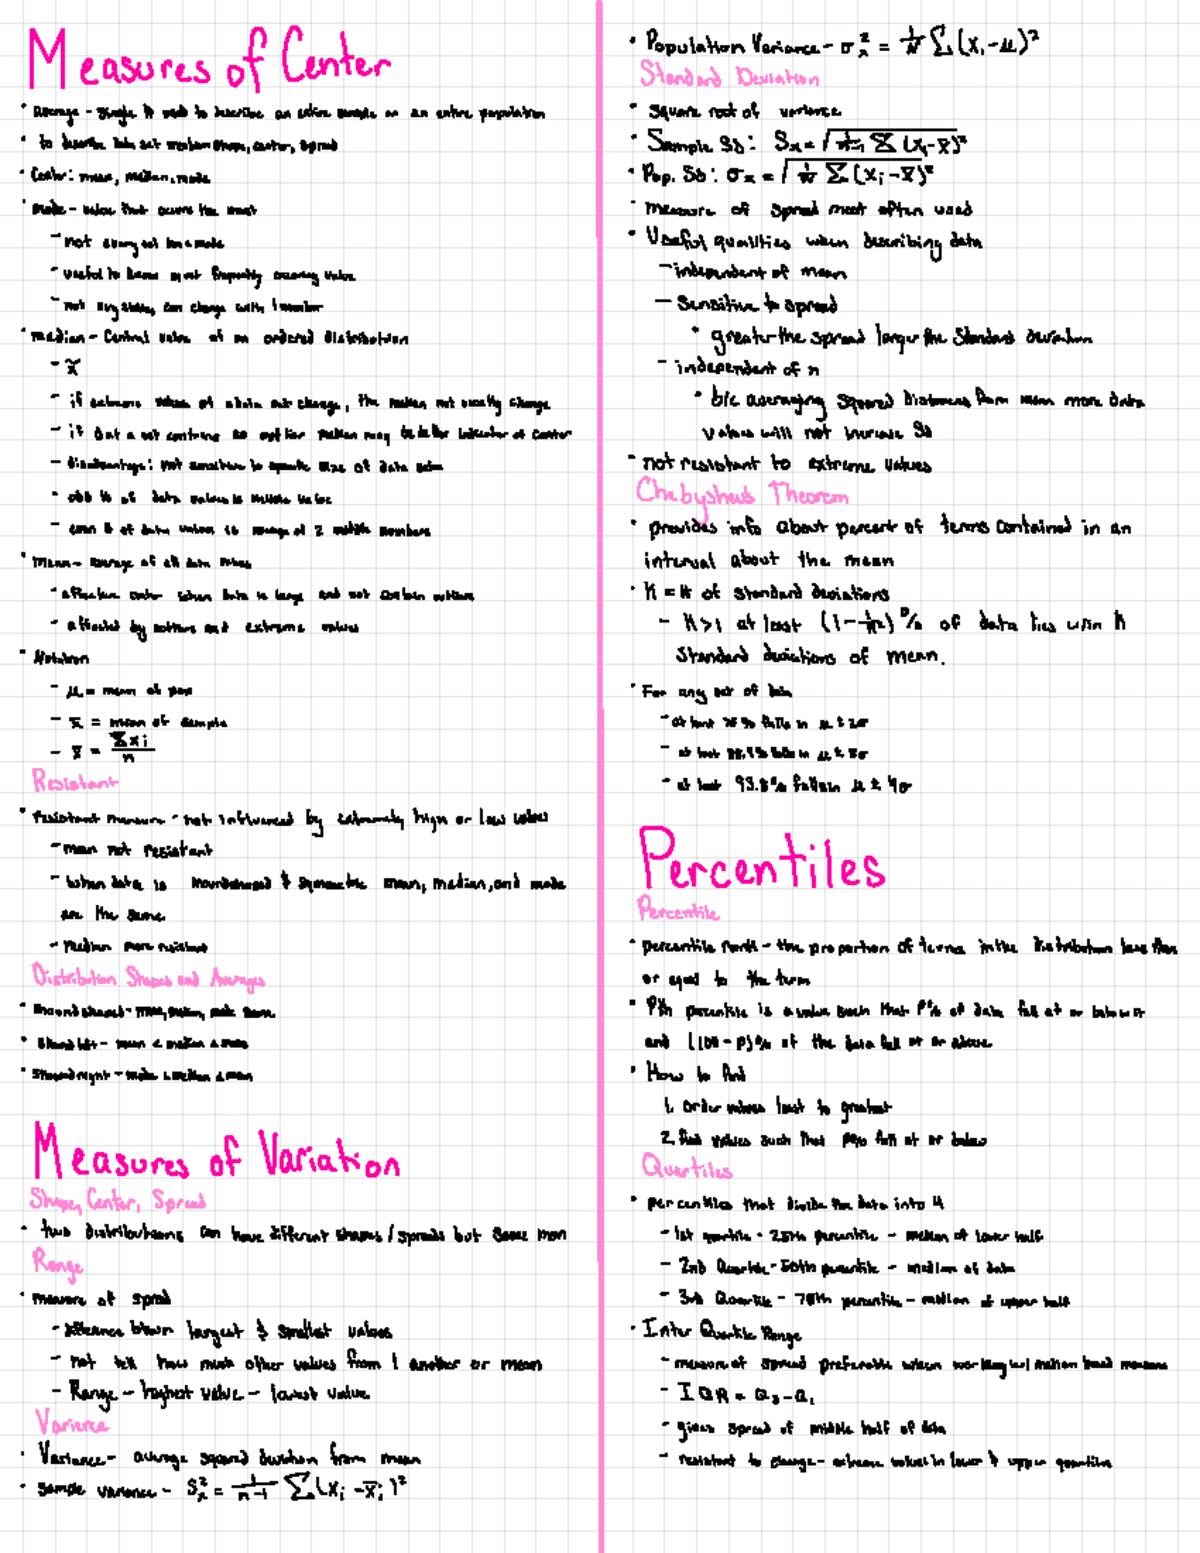 Measures of Center
• Average - single # used to describe an entire sample or an entire population
• to describe data set mention shape, center, spread
• Center: mean, median, mode
• mode - value that occurs the most
- not every set has a mode
- useful to know most frequently occuring value
- not very stable, can change with 1 number
• median - Central value of an ordered distribution
- x̃
- if extreme values of a data set change, the median not usually change
- if data set contains an outlier median may be better indicator of center
- disadvantage: not sensitive to specific size of data value
- odd # of data values is middle value
- even # of data values is average of 2 middle numbers
• Mean - average of all data values
- effective center when data is large and not contain outliers
- affected by outliers and extreme values
• Notation
- μ = mean of pop
- x̄ = mean of sample
- x̄ = Σxi / n
Resistant
• resistant measure - not influenced by extremely high or low values
- mean not resistant
- when data is moundshaped & symmetric mean, median, and mode
are the same
- median more resistant
Distribution Shapes and Averages
• Mound shaped - mean, median, mode same
• Skewed left - mean < median < mode
• Skewed right - mode < median < mean
Measures of Variation
Shape, Center, Spread
• two distributions can have different shapes / spreads but same mean
Range
• measure of spread
- difference btwn largest & smallest values
- not tell how much other values from 1 another or mean
- Range - highest value - lowest value
Variance
• Variance - average squared deviation from mean
• Sample variance - Sx² = 1/(n-1) Σ(xi - x̄i)²
• Population Variance - σx² = 1/N Σ(xi - μ)²
Standard Deviation
• square root of variance
• Sample SD: Sx = √(1/(n-1) Σ(xi - x̄)²)
• Pop. SD: σx = √(1/N Σ(xi - x̄)²)
• measure of spread most often used
• Useful qualities when describing data
- independent of mean
- Sensitive to spread
• greater the spread larger the Standard deviation
- independent of n
• b/c averaging squared distances from mean more data
values will not increase SD
- not resistant to extreme values
Chebyshev's Theorem
• provides info about percent of terms contained in an
interval about the mean
• K = # of standard deviations
- K>1 at least (1 - 1/K²)% of data lies w/in K
standard deviations of mean.
• For any set of data
- at least 75% falls in μ ± 2σ
- at least 88.9% falls in μ ± 3σ
- at least 93.8% falls in μ ± 4σ
Percentiles
Percentile
• percentile rank - the proportion of terms in the distribution less than
or equal to the term
• Pth percentile is a value such that P% of data fall at or below it
and (100 - P)% of the data fall at or above
• How to find
1. Order values least to greatest
2. find values such that P% fall at or below
Quartiles
• percentiles that divide the data into 4
- 1st quartile - 25th percentile - median of lower half
- 2nd Quartile - 50th percentile - median of data
- 3rd Quartile - 75th percentile - median of upper half
• Inter Quartile Range
- measure of spread preferable when working w/ median based measures
- IQR = Q3 - Q1
- gives spread of middle half of data
- resistant to change - extreme values in lower & upper quartiles